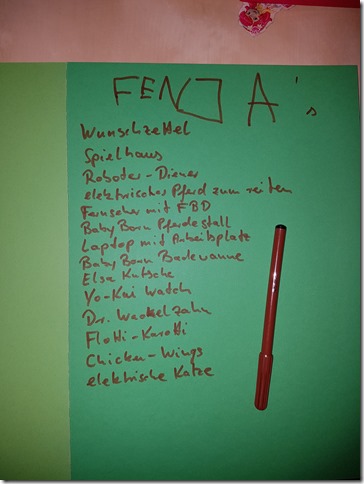 FENJA's
Wunschzettel
Spielhaus
Roboter-Diener
elektrisches Pferd zum reiten
Fernseher mit FBD
Baby Born Pferdestall
Laptop mit Arbeitsplatz
Baby Born Badewanne
Elsa Kutsche
Yo-Kai Watch
Dr. Wackelzahn
Flotti-Karotti
Chicken-Wings
elektrische Katze